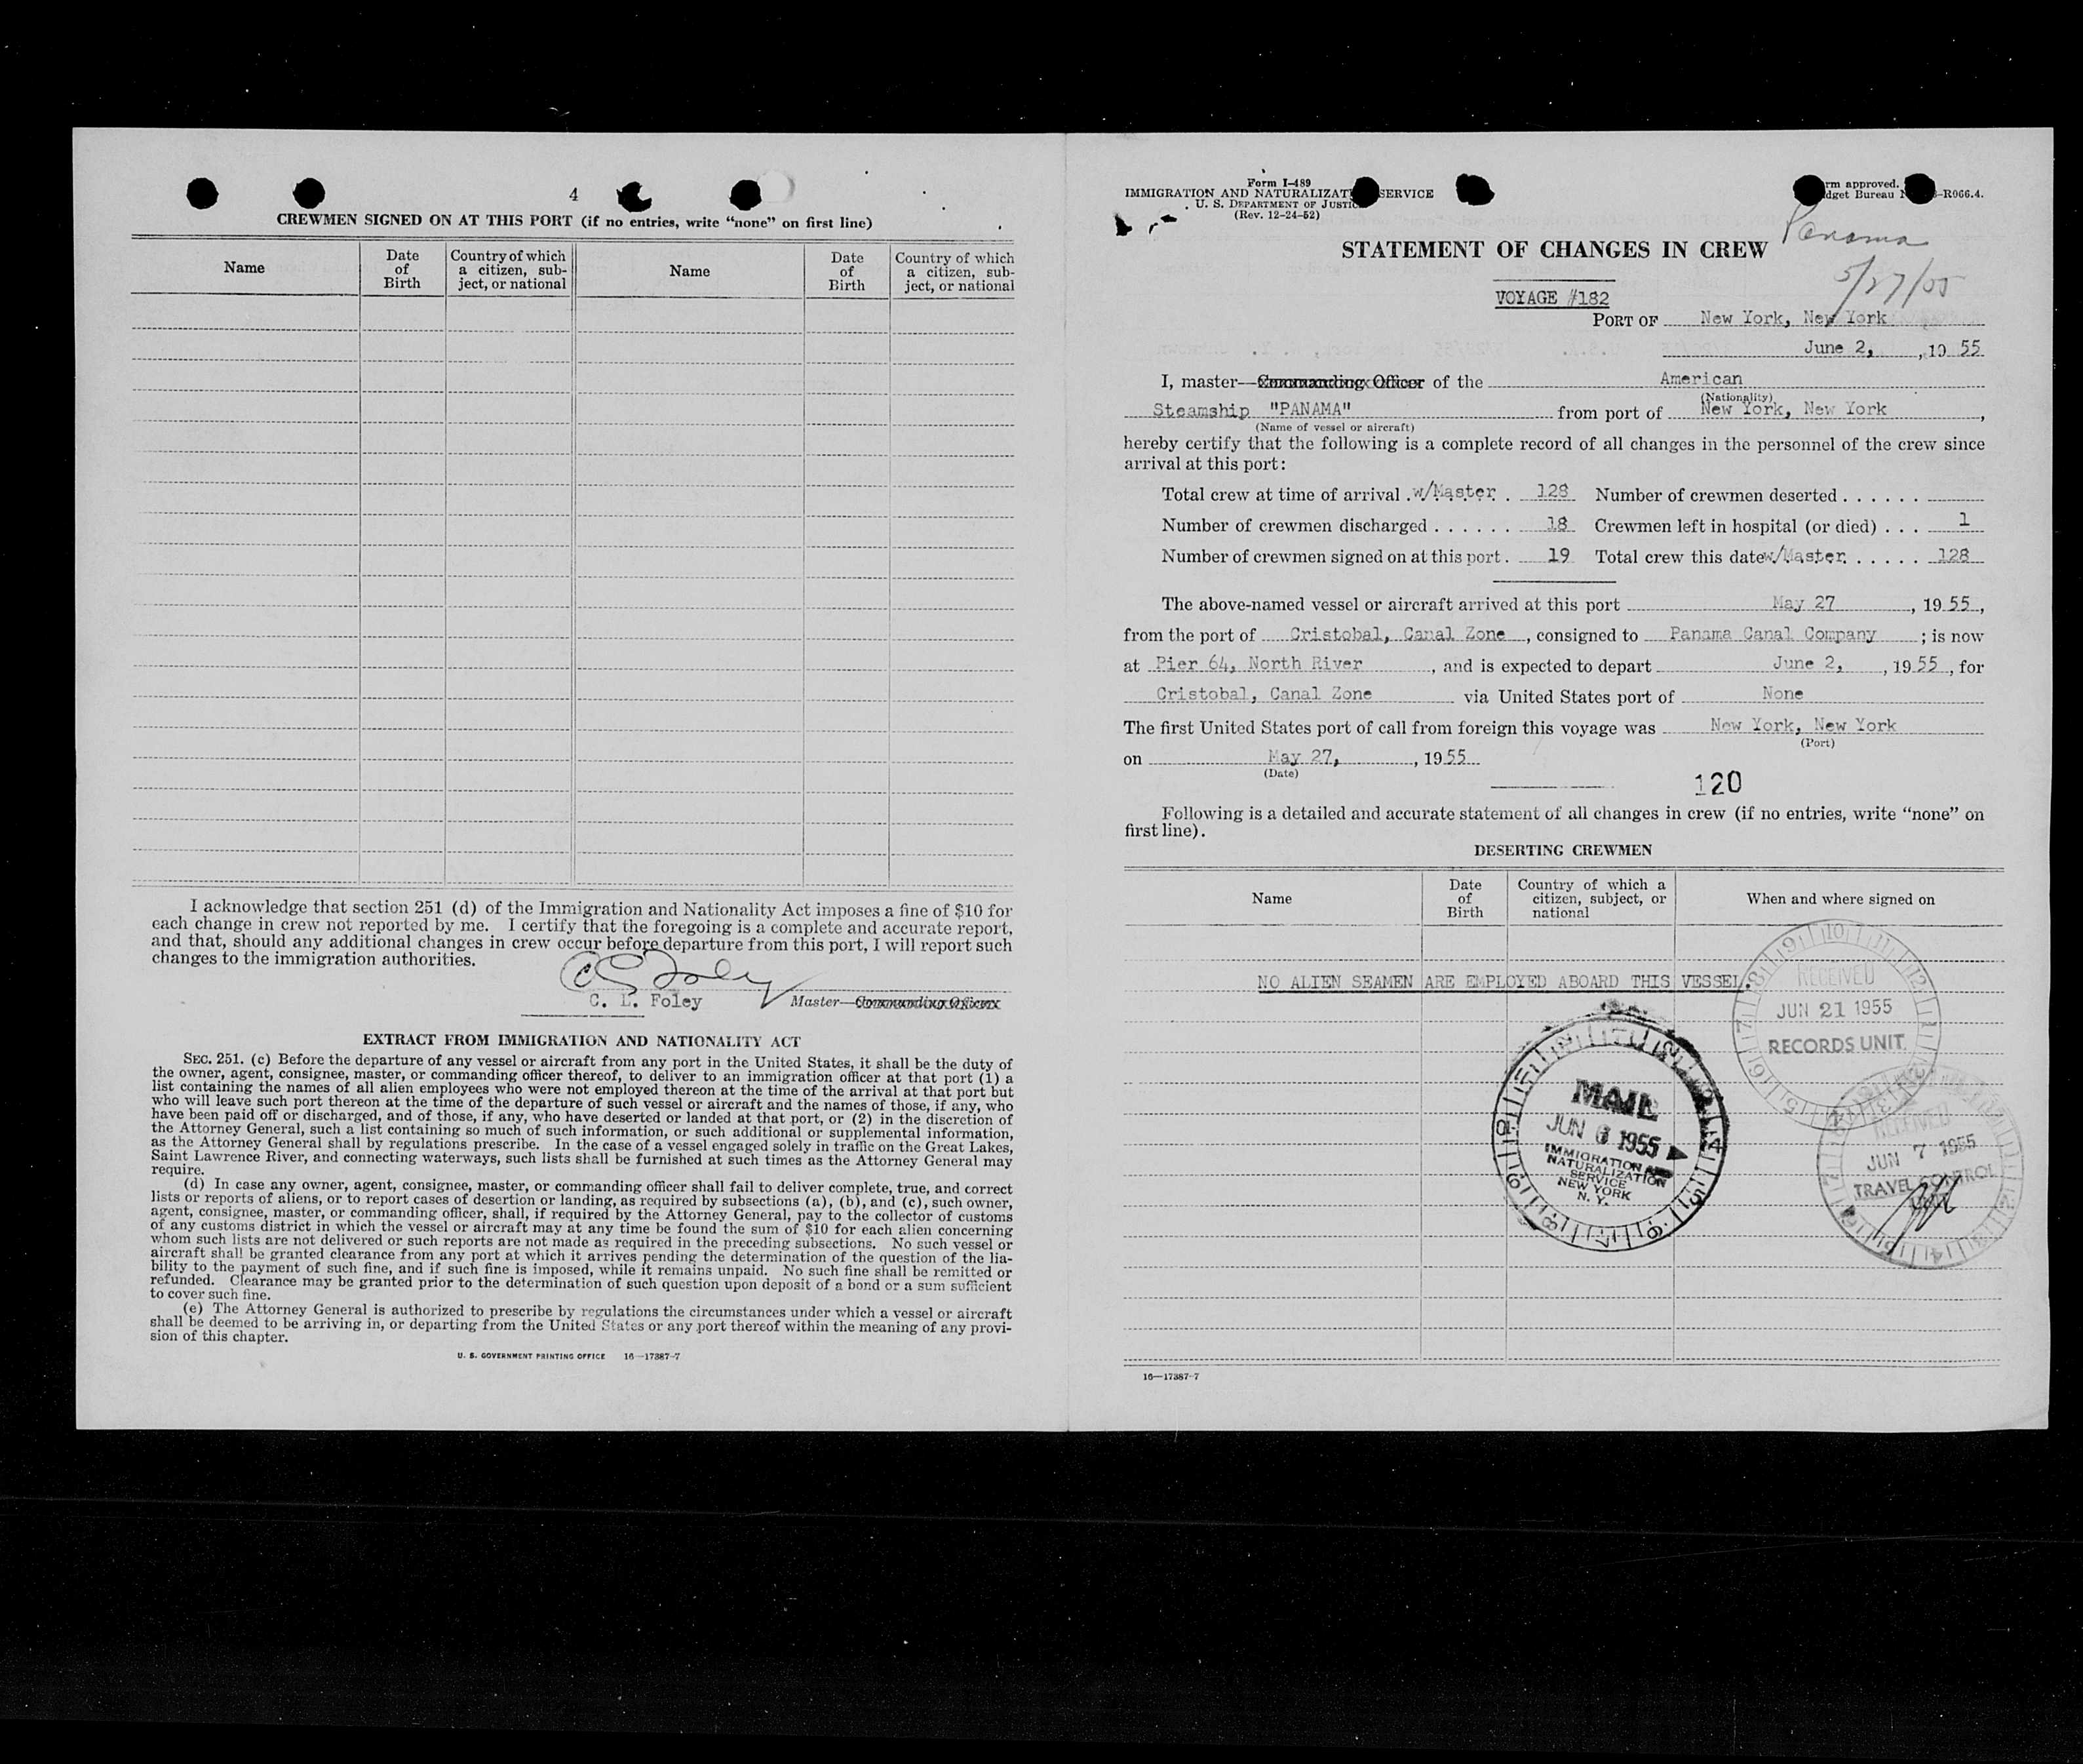 4
CREWMEN SIGNED ON AT THIS PORT (if no entries, write "none" on first line)
Name
Date of Birth
Country of which a citizen, sub-ject, or national
Name
Date of Birth
Country of which a citizen, sub-ject, or national
I acknowledge that section 251 (d) of the Immigration and Nationality Act imposes a fine of $10 for
each change in crew not reported by me. I certify that the foregoing is a complete and accurate report,
and that, should any additional changes in crew occur before departure from this port, I will report such
changes to the immigration authorities.
C L Foley
C. L. Foley Master—Commanding Officer
EXTRACT FROM IMMIGRATION AND NATIONALITY ACT
SEC. 251. (c) Before the departure of any vessel or aircraft from any port in the United States, it shall be the duty of
the owner, agent, consignee, master, or commanding officer thereof, to deliver to an immigration officer at that port (1) a
list containing the names of all alien employees who were not employed thereon at the time of the arrival at that port but
who will leave such port thereon at the time of the departure of such vessel or aircraft and the names of those, if any, who
have been paid off or discharged, and of those, if any, who have deserted or landed at that port, or (2) in the discretion of
the Attorney General, such a list containing so much of such information, or such additional or supplemental information,
as the Attorney General shall by regulations prescribe. In the case of a vessel engaged solely in traffic on the Great Lakes,
Saint Lawrence River, and connecting waterways, such lists shall be furnished at such times as the Attorney General may
require.
(d) In case any owner, agent, consignee, master, or commanding officer shall fail to deliver complete, true, and correct
lists or reports of aliens, or to report cases of desertion or landing, as required by subsections (a), (b), and (c), such owner,
agent, consignee, master, or commanding officer, shall, if required by the Attorney General, pay to the collector of customs
of any customs district in which the vessel or aircraft may at any time be found the sum of $10 for each alien concerning
whom such lists are not delivered or such reports are not made as required in the preceding subsections. No such vessel or
aircraft shall be granted clearance from any port at which it arrives pending the determination of the question of the lia-
bility to the payment of such fine, and if such fine is imposed, while it remains unpaid. No such fine shall be remitted or
refunded. Clearance may be granted prior to the determination of such question upon deposit of a bond or a sum sufficient
to cover such fine.
(e) The Attorney General is authorized to prescribe by regulations the circumstances under which a vessel or aircraft
shall be deemed to be arriving in, or departing from the United States or any port thereof within the meaning of any provi-
sion of this chapter.
U. S. GOVERNMENT PRINTING OFFICE 16—17387-7
Form I-489
IMMIGRATION AND NATURALIZAT SERVICE
U. S. DEPARTMENT OF JUSTIC
(Rev. 12-24-52)
rm approved.
dget Bureau N -R066.4.
Panama
5/27/55
STATEMENT OF CHANGES IN CREW
VOYAGE #182
PORT OF New York, New York
June 2, , 19 55
I, master—Commanding Officer of the American
(Nationality)
Steamship "PANAMA" from port of New York, New York ,
(Name of vessel or aircraft)
hereby certify that the following is a complete record of all changes in the personnel of the crew since
arrival at this port:
Total crew at time of arrival w/Master . 128 Number of crewmen deserted . . . . . .
Number of crewmen discharged . . . . . . 18 Crewmen left in hospital (or died) . . . 1
Number of crewmen signed on at this port . 19 Total crew this date w/Master . . . . . 128
The above-named vessel or aircraft arrived at this port May 27 , 19 55 ,
from the port of Cristobal, Canal Zone , consigned to Panama Canal Company ; is now
at Pier 64, North River , and is expected to depart June 2, , 19 55 , for
Cristobal, Canal Zone via United States port of None
The first United States port of call from foreign this voyage was New York, New York
(Port)
on May 27, , 19 55
(Date)
120
Following is a detailed and accurate statement of all changes in crew (if no entries, write "none" on
first line).
DESERTING CREWMEN
Name
Date of Birth
Country of which a citizen, subject, or national
When and where signed on
NO ALIEN SEAMEN ARE EMPLOYED ABOARD THIS VESSEL.
RECEIVED
JUN 21 1955
RECORDS UNIT
MAIL
JUN 6 1955
IMMIGRATION AND
NATURALIZATION
SERVICE
NEW YORK
N. Y.
RECEIVED
JUN 7 1955
TRAVEL CONTROL
16—17387-7